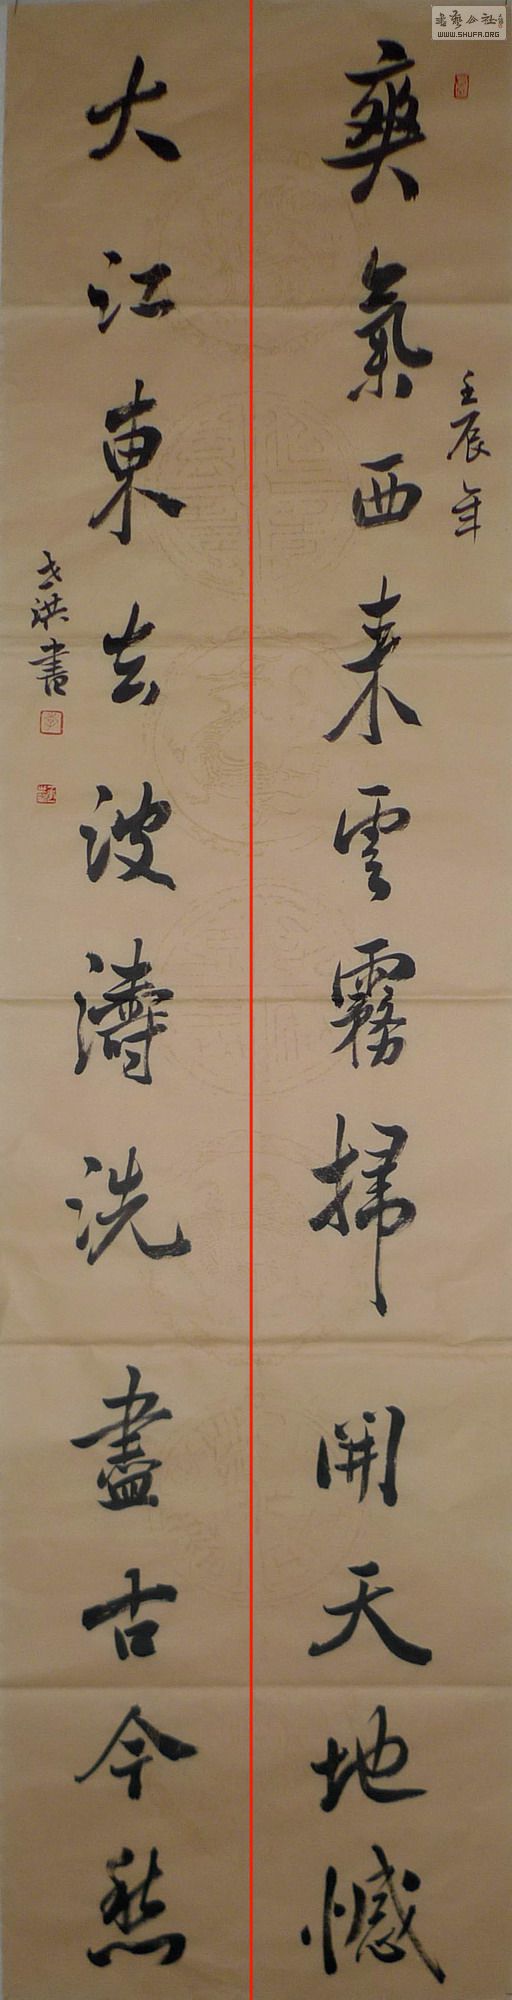 書藝公社
WWW.SHUFA.ORG
壬辰年
爽氣西来雲霧掃開天地憾
大江東去波濤洗盡古今愁
洪書